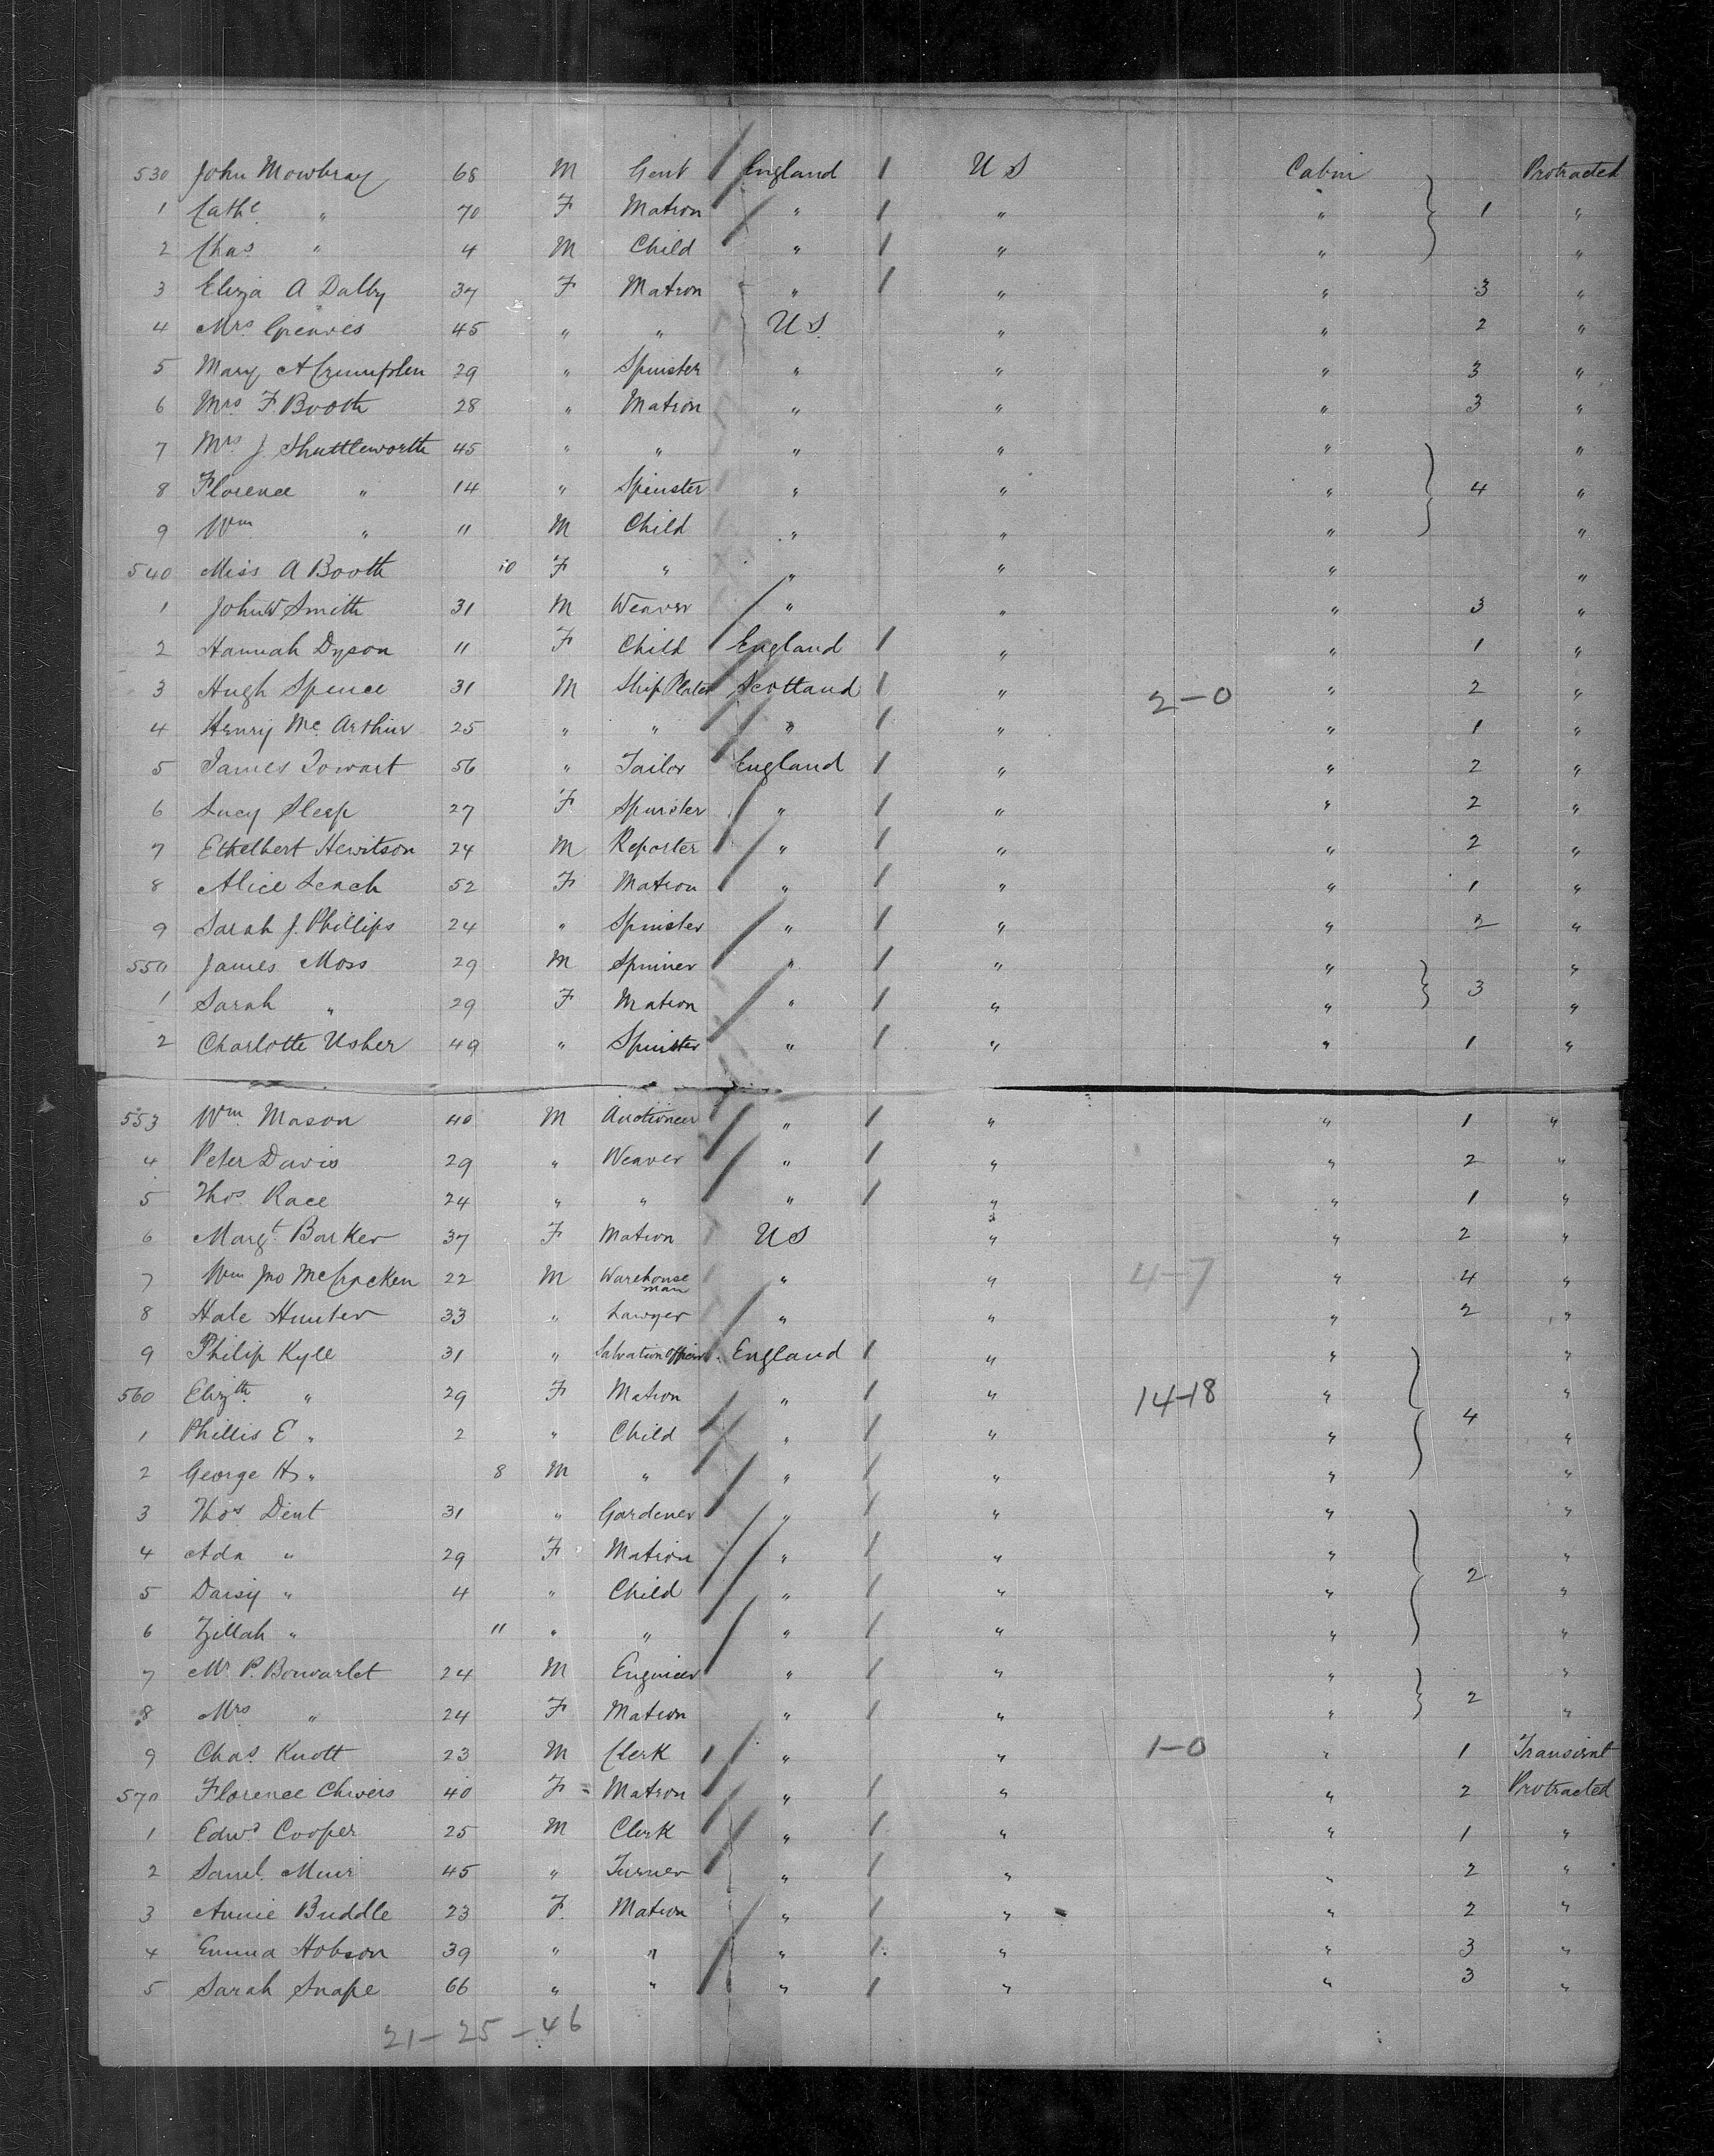 530 John Mowbray 68 M Gent England 1 U S Cabin Protracted
1 Cathe " 70 F Matron " 1 " " 1 "
2 Chas " 4 M Child " 1 " " "
3 Eliza A Dalby 37 F Matron " 1 " " 3 "
4 Mrs Greaves 45 " " U S. " " 2 "
5 Mary A Crumplen 29 " Spinster " " " 3 "
6 Mrs F. Booth 28 " Matron " " " 3 "
7 Mrs J Shuttleworth 45 " " " " " "
8 Florence " 14 " Spinster " " " 4 "
9 Wm " 11 M Child " " " "
540 Miss A Booth 10 F " " " " "
1 John W Smith 31 M Weaver " " " 3 "
2 Hannah Dyson 11 F Child England 1 " " 1 "
3 Hugh Spence 31 M Ship Plater Scotland 1 " 2-0 " 2 "
4 Henry Mc Arthur 25 " " " 1 " " 1 "
5 James Towart 56 " Tailor England 1 " " 2 "
6 Lucy Sleep 27 F Spinster " 1 " " 2 "
7 Ethelbert Hewitson 24 M Reporter " 1 " " 2 "
8 Alice Leach 52 F Matron " 1 " " 1 "
9 Sarah J. Phillips 24 " Spinster " 1 " " 2 "
550 James Moss 29 M Spinner " 1 " " "
1 Sarah " 29 F Matron " 1 " " 3 "
2 Charlotte Usher 49 " Spinster " 1 " " 1 "
553 Wm Mason 40 M Auctioneer " 1 " " 1 "
4 Peter Davis 29 " Weaver " 1 " " 2 "
5 Thos Race 24 " " " 1 " " 1 "
6 Margt Barker 37 F Matron U S " " 2 "
7 Wm Jno McCracken 22 M Warehouse man " " 4-7 " 4 "
8 Hale Hunter 33 " Lawyer " " " 2 "
9 Philip Kyle 31 " Salvation Officer England 1 " " "
560 Elizth " 29 F Matron " 1 " 14-18 " "
1 Phillis E " 2 " Child " 1 " " 4 "
2 George H " 8 M " " 1 " " "
3 Thos Dent 31 " Gardener " 1 " " "
4 Ada " 29 F Matron " 1 " " "
5 Daisy " 4 " Child " 1 " " 2 "
6 Zillah " 11 " " " 1 " " "
7 Mr P. Bouvarlet 24 M Engineer " 1 " " "
8 Mrs " 24 F Matron " 1 " " 2 "
9 Chas Knott 23 M Clerk 1 " " 1-0 " 1 Transient
570 Florence Chivers 40 F Matron " 1 " " 2 Protracted
1 Edwd Cooper 25 M Clerk " 1 " " 1 "
2 Saml Muir 45 " Turner " 1 " " 2 "
3 Annie Buddle 23 F. Matron " 1 " " 2 "
4 Emma Hobson 39 " " " 1 " " 3 "
5 Sarah Snape 66 " " " 1 " " 3 "
21-25-46